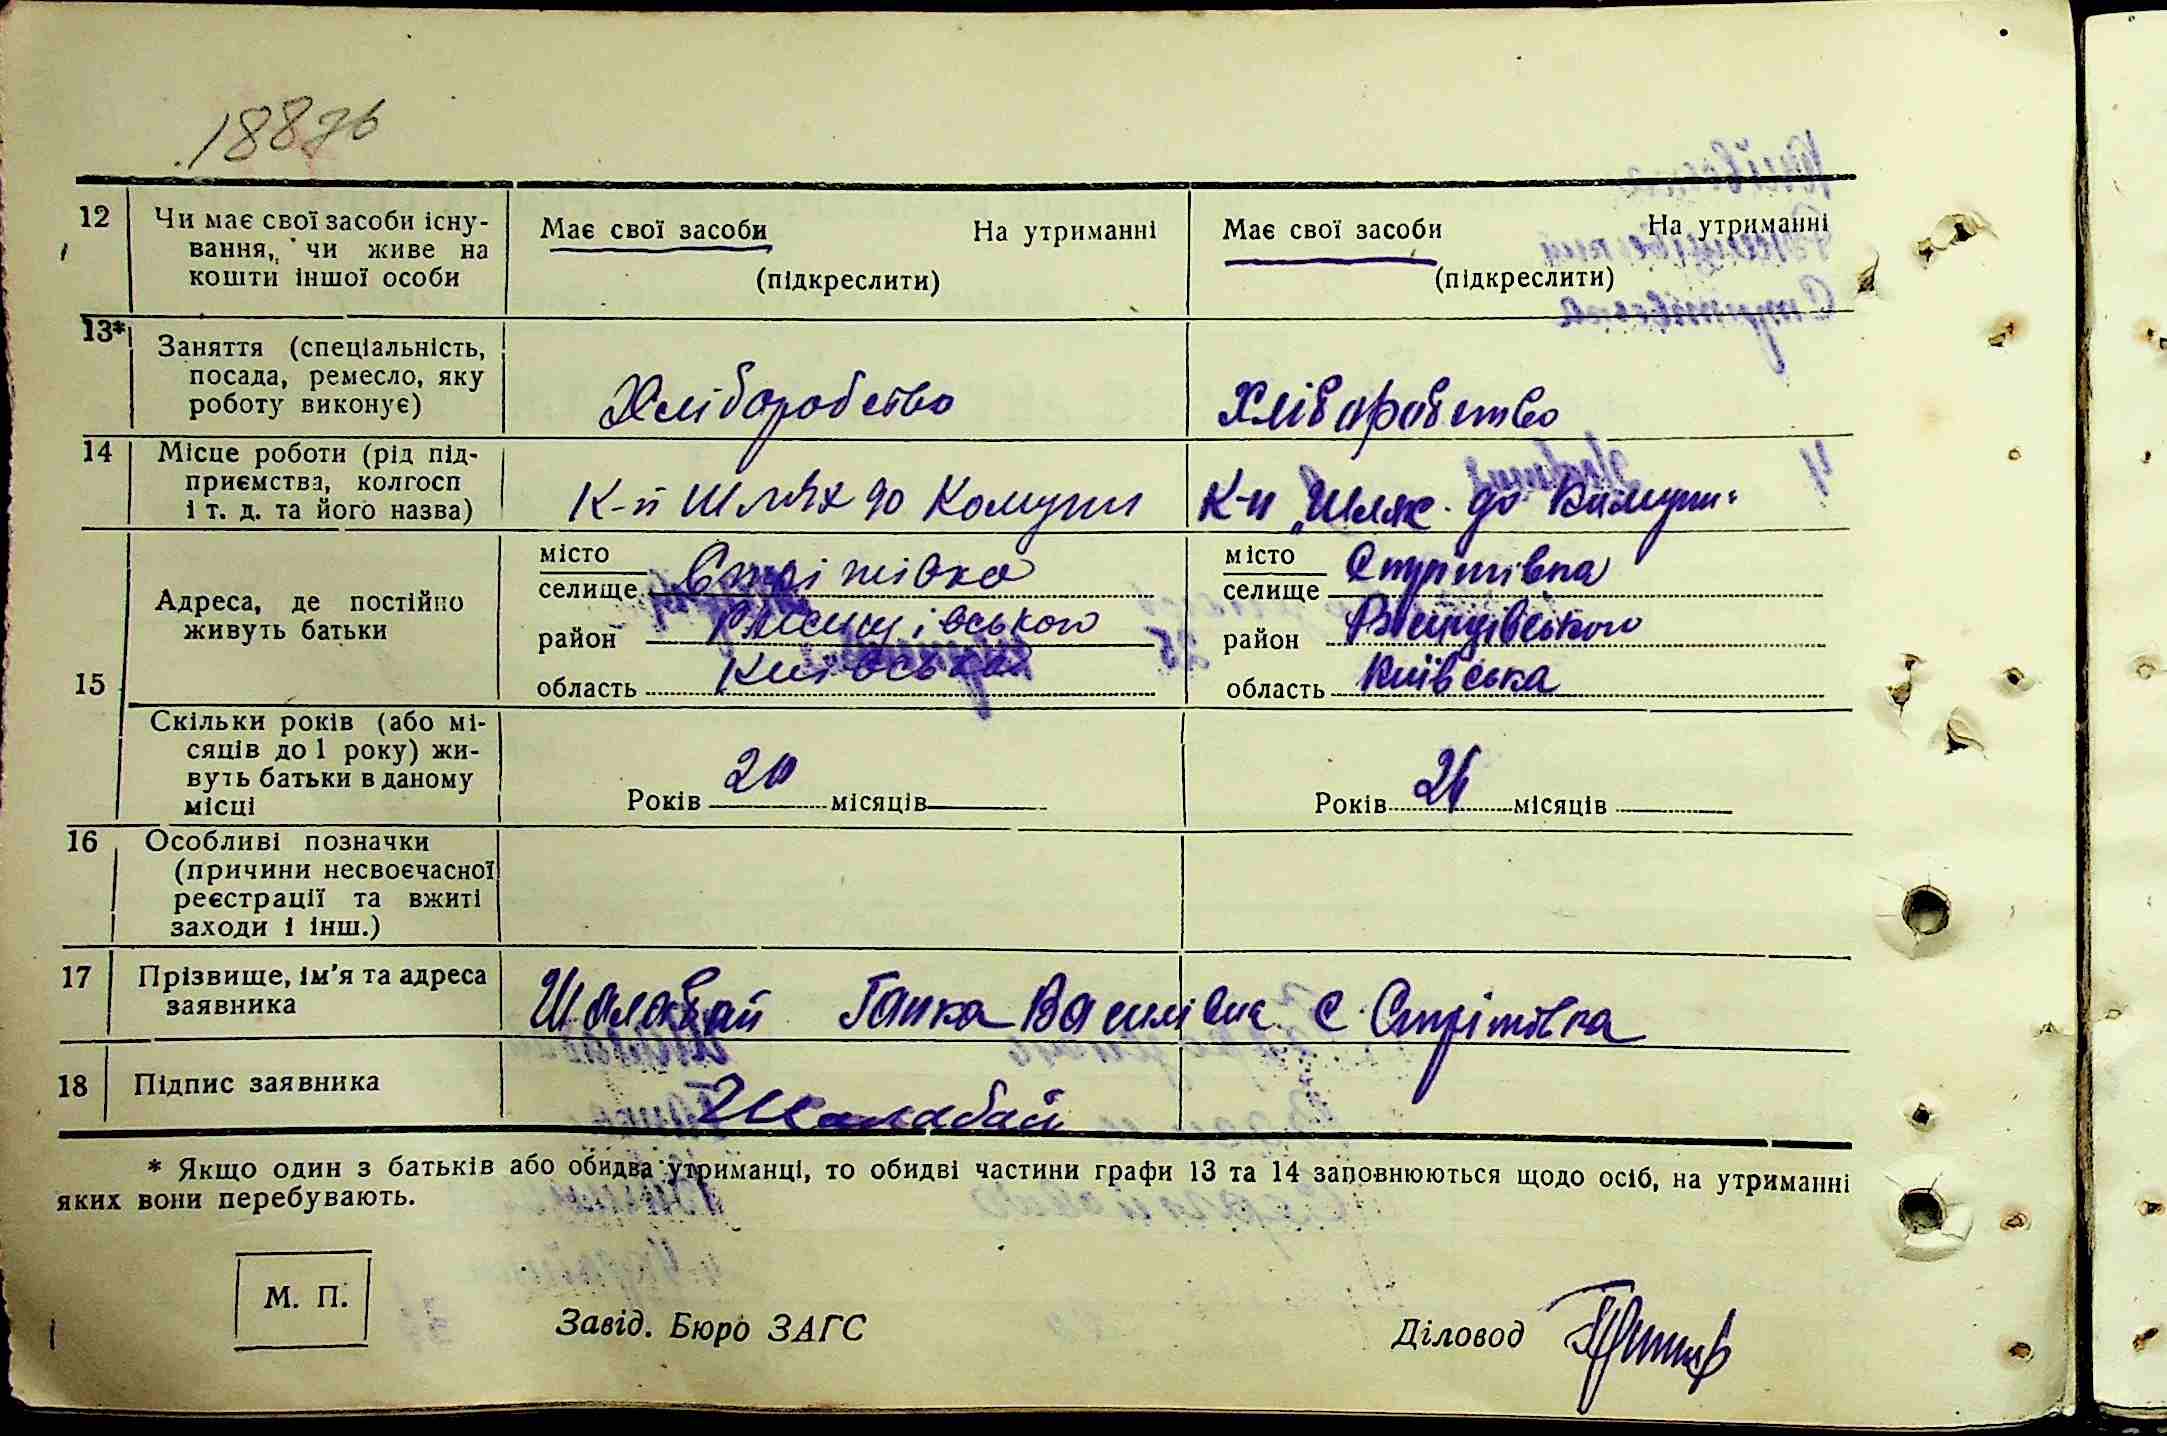 18876
12 Чи має свої засоби існу-
вання, чи живе на
кошти іншої особи
Має свої засоби На утриманні
(підкреслити)
Має свої засоби На утриманні
(підкреслити)
13* Заняття (спеціальність,
посада, ремесло, яку
роботу виконує)
Хліборобство
Хліборобство
14 Місце роботи (рід під-
приємства, колгосп
і т. д. та його назва)
К-п Шлях до Комуни
К-п „Шлях до Комуни"
15 Адреса, де постійно
живуть батьки
місто
селище Стрітівка
район Ржищівського
область Київська
місто
селище Стрітівка
район Ржищівського
область Київська
Скільки років (або мі-
сяців до 1 року) жи-
вуть батьки в даному
місці
Років 20 місяців
Років 26 місяців
16 Особливі позначки
(причини несвоєчасної
реєстрації та вжиті
заходи і інш.)
17 Прізвище, ім'я та адреса
заявника
Шалабай Ганка Василівна с Стрітівка
18 Підпис заявника
Шалабай
* Якщо один з батьків або обидва утриманці, то обидві частини графи 13 та 14 заповнюються щодо осіб, на утриманні
яких вони перебувають.
М. П.
Завід. Бюро ЗАГС
Діловод